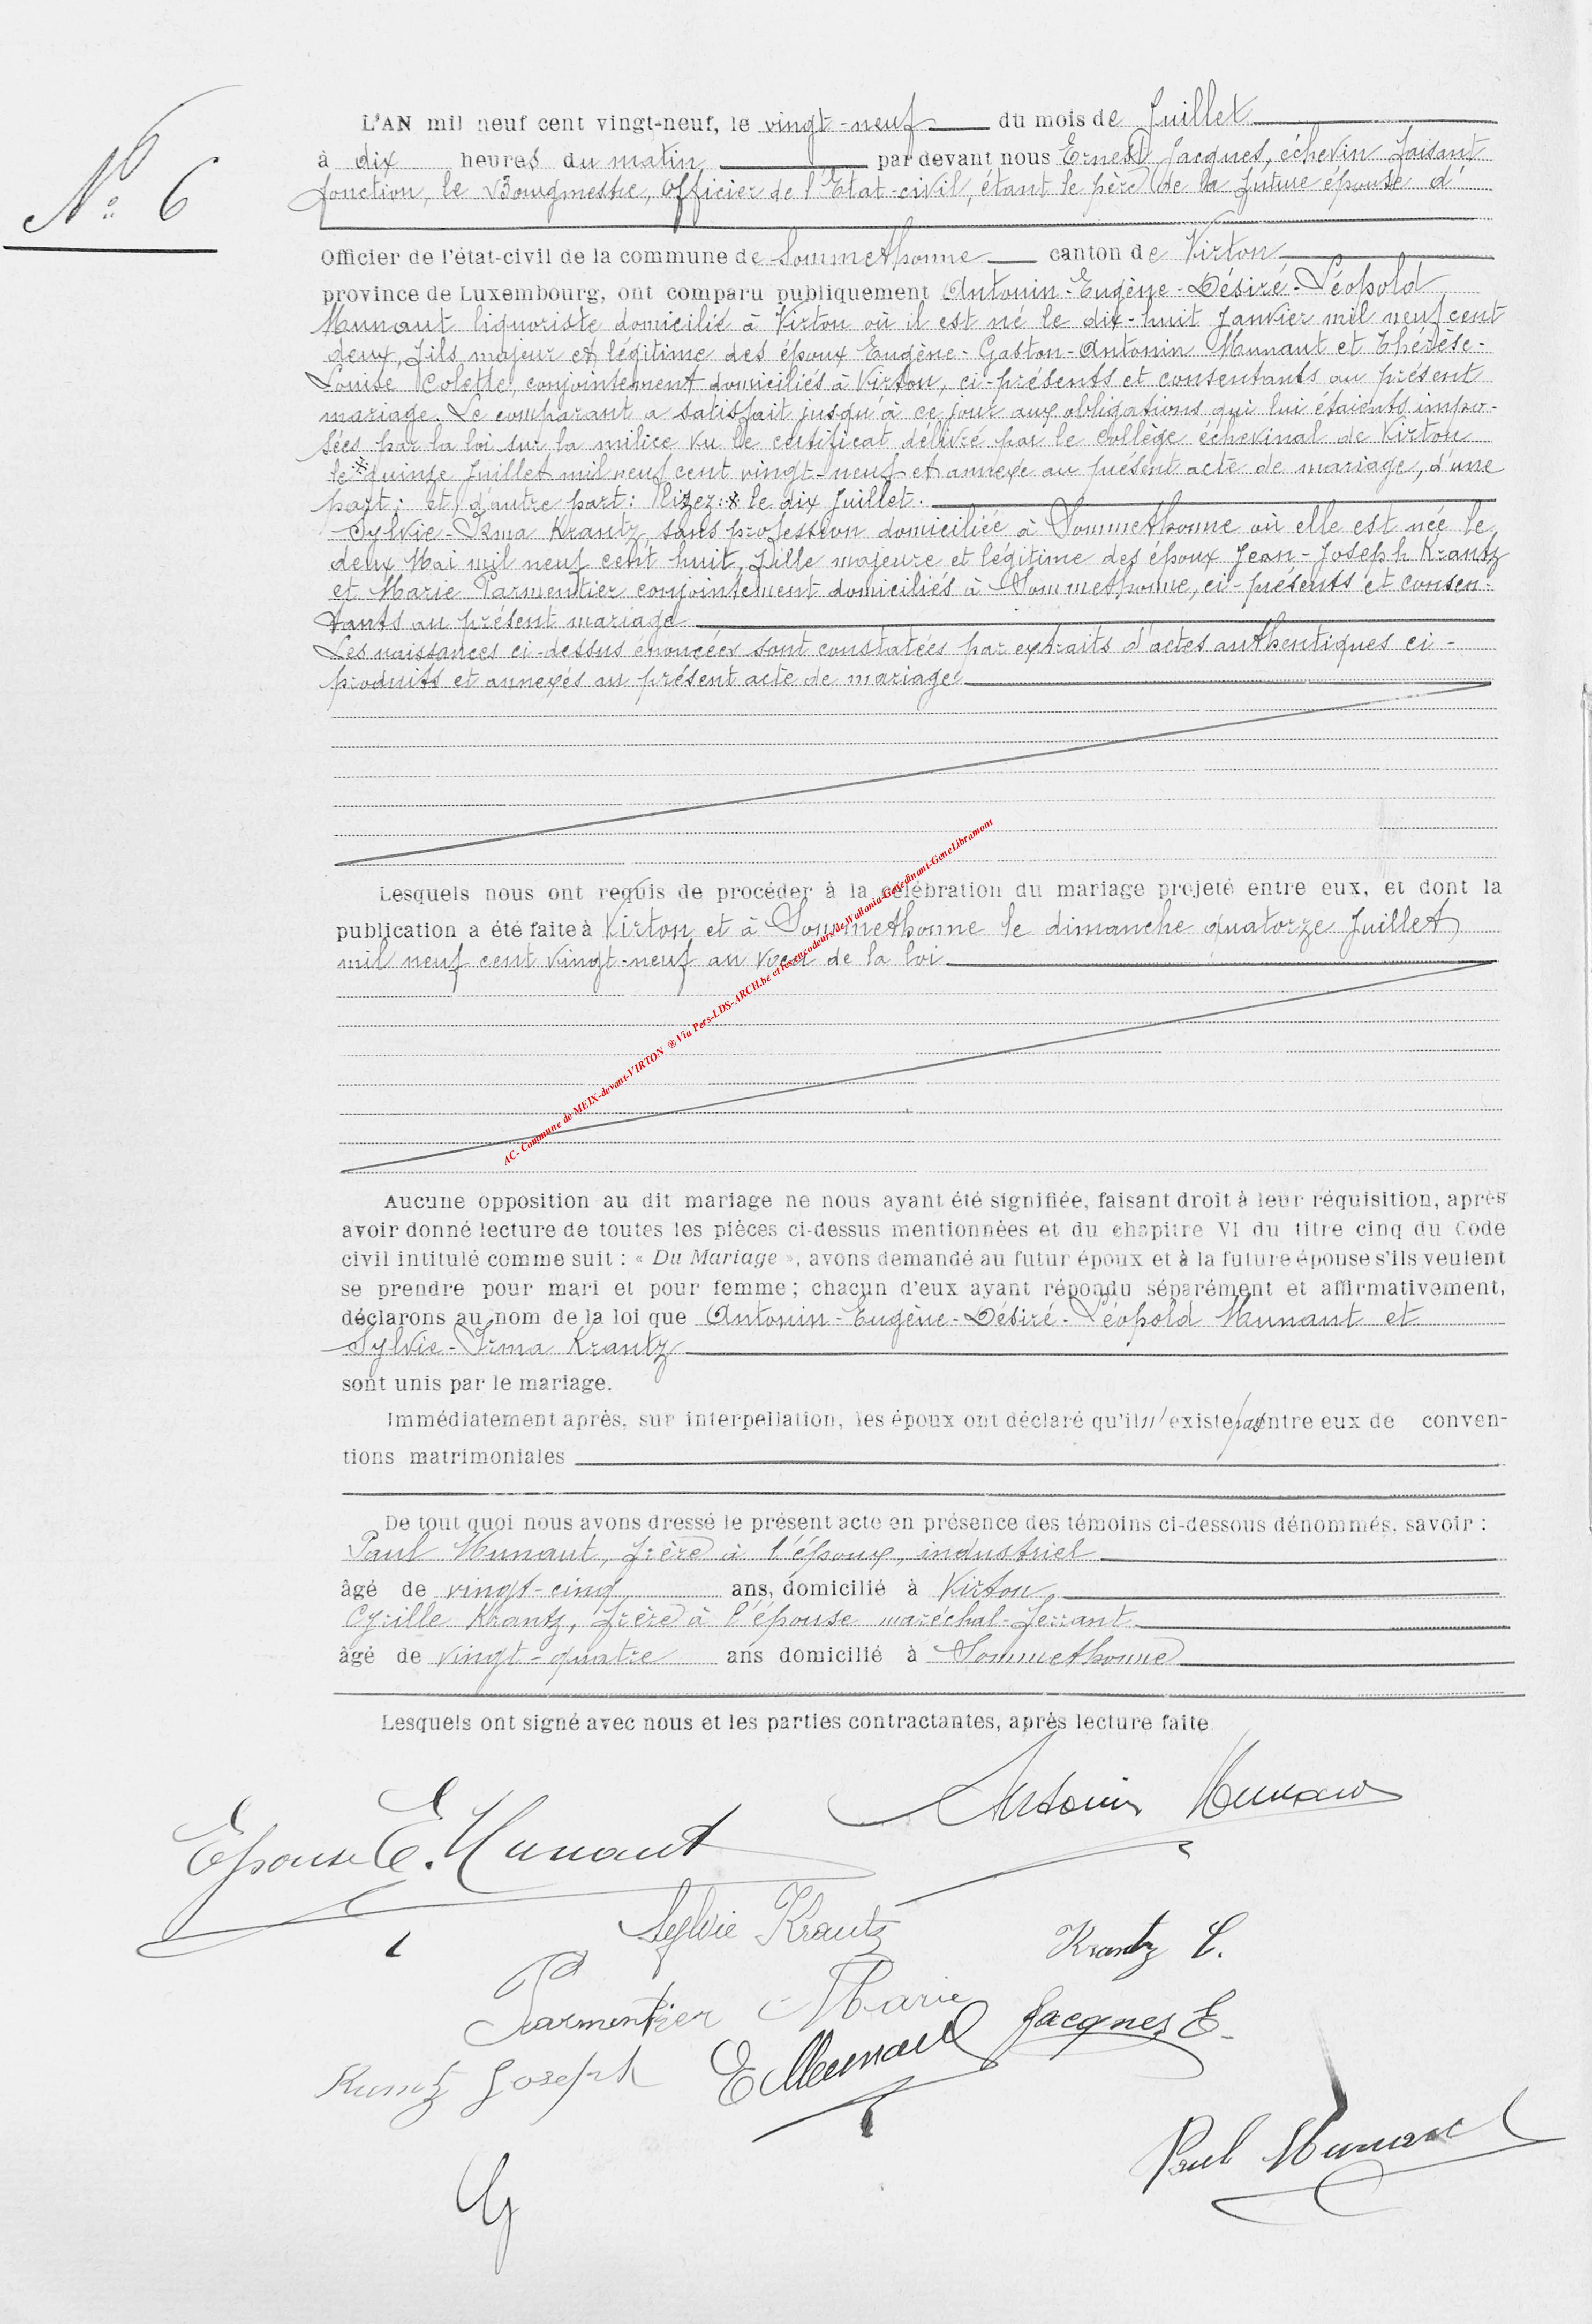 N° 6
L'AN mil neuf cent vingt-neuf, le vingt-neuf du mois de Juillet
à dix heures du matin par devant nous Ernest Jacques, échevin faisant
fonction, le Bourgmestre, Officier de l'Etat-civil, étant le père de la future épouse d'
Officier de l'état-civil de la commune de Sommethonne canton de Virton
province de Luxembourg, ont comparu publiquement Antonin-Eugène-Désiré-Léopold
Munaut liquoriste domicilié à Virton où il est né le dix-huit Janvier mil neuf cent
deux, fils majeur et légitime des époux Eugène-Gaston-Antonin Munaut et Thérèse-
Louise Colette, conjointement domiciliés à Virton, ci-présents et consentants au présent
mariage. Le comparant a satisfait jusqu'à ce jour aux obligations qui lui étaients impo-
sées par la loi sur la milice vu le certificat délivré par le collège échevinal de Virton
le quinze Juillet mil neuf cent vingt-neuf et annexé au présent acte de mariage, d'une
part; et d'autre part: Lizez: le dix Juillet.
Sylvie-Irma Krantz, sans profession domiciliée à Sommethonne où elle est née le
deux Mai mil neuf cent huit, fille majeure et légitime des époux Jean-Joseph Krantz
et Marie Parmentier conjointement domiciliés à Sommethonne, ci-présents et consen-
tants au présent mariage
Les naissances ci-dessus énoncées sont constatées par extraits d'actes authentiques ci-
produits et annexés au présent acte de mariage
Lesquels nous ont requis de procéder à la célébration du mariage projeté entre eux, et dont la
publication a été faite à Virton et à Sommethonne le dimanche quatorze Juillet
mil neuf cent vingt-neuf au voeu de la loi
AC- Commune de MEIX-devant-VIRTON ® Via Pers-LDS-ARCH.be et les encodeurs de Wallonia-Genedinant-GeneLibramont
Aucune opposition au dit mariage ne nous ayant été signifiée, faisant droit à leur réquisition, après
avoir donné lecture de toutes les pièces ci-dessus mentionnées et du chapitre VI du titre cinq du Code
civil intitulé comme suit : « Du Mariage », avons demandé au futur époux et à la future épouse s'ils veulent
se prendre pour mari et pour femme ; chacun d'eux ayant répondu séparément et affirmativement,
déclarons au nom de la loi que Antonin-Eugène-Désiré-Léopold Munaut et
Sylvie-Irma Krantz
sont unis par le mariage.
Immédiatement après, sur interpellation, les époux ont déclaré qu'il n'existe pas entre eux de conven-
tions matrimoniales
De tout quoi nous avons dressé le présent acte en présence des témoins ci-dessous dénommés, savoir :
Paul Munaut, frère à l'époux, industriel
âgé de vingt-cinq ans, domicilié à Virton
Cyrille Krantz, frère à l'épouse maréchal-ferrant
âgé de vingt-quatre ans domicilié à Sommethonne
Lesquels ont signé avec nous et les parties contractantes, après lecture faite
Antonin Munaut
Epouse E. Munaut
Sylvie Krantz
Krantz C.
Parmentier Marie
Jacques E.
Krantz Joseph
E Munaut
Paul Munaut